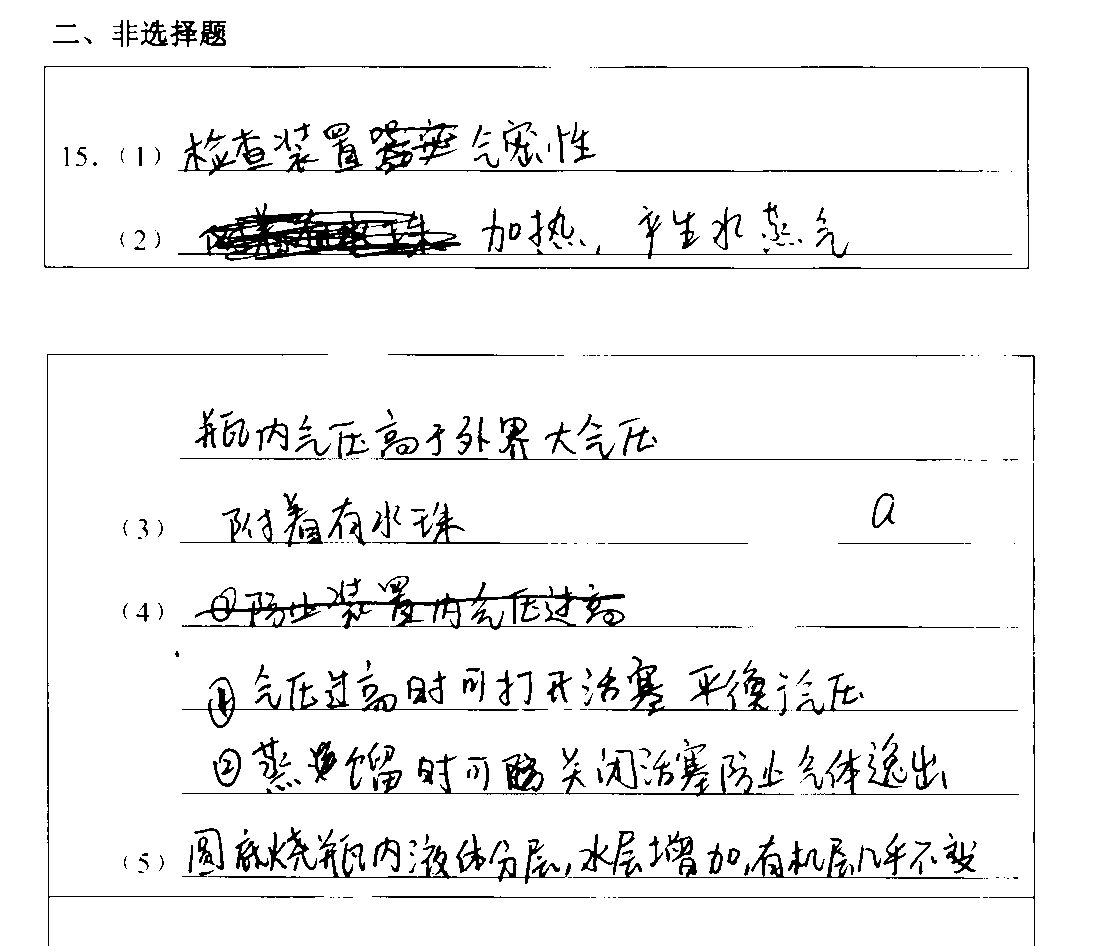 二、非选择题
15.（1）检查装置气密性
（2）加热，产生水蒸气
瓶内气压高于外界大气压
（3）附着有水珠 a
（4）①防止装置内气压过高
①气压过高时可打开活塞平衡气压
②蒸馏时可关闭活塞防止气体逸出
（5）圆底烧瓶内液体分层，水层增加，有机层几乎不变